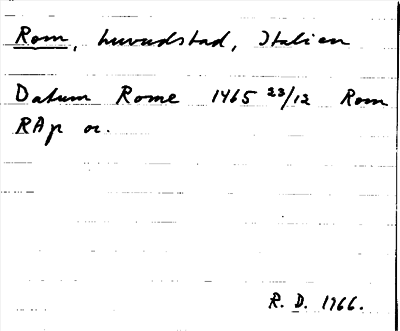 Rom, huvudstad, Italien
Datum Rome 1465 23/12 Rom
RAp or.
R. D. 1966.